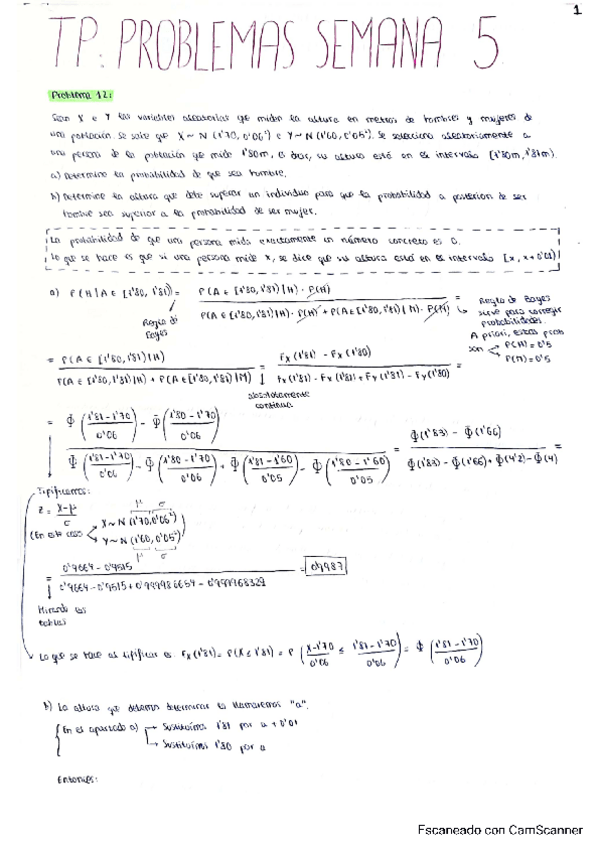 1
TP: PROBLEMAS SEMANA 5
Problema 12:
Sean X e Y las variables aleatorias que miden la altura en metros de hombres y mujeres de
una población. Se sabe que X ~ N (1'70, 0'06²) e Y ~ N (1'60, 0'05²). Se selecciona aleatoriamente a
una persona de la población que mide 1'80m, es decir, su altura está en el intervalo [1'80m, 1'81m).
a) Determine la probabilidad de que sea hombre.
b) Determine la altura que debe superar un individuo para que la probabilidad a posteriori de ser
hombre sea superior a la probabilidad de ser mujer.
La probabilidad de que una persona mida exactamente un número concreto es 0.
Lo que se hace es que si una persona mide x, se dice que su altura está en el intervalo [x, x+0'01)
a) P(H|A ∈ [1'80, 1'81)) = P(A ∈ [1'80, 1'81)|H) · P(H) / P(A ∈ [1'80, 1'81)|H) · P(H) + P(A ∈ [1'80, 1'81)|M) · P(M) =
Regla de Bayes
Regla de Bayes sirve para corregir probabilidades.
A priori, estas prob son P(H) = 0'5
P(M) = 0'5
= P(A ∈ [1'80, 1'81)|H) / P(A ∈ [1'80, 1'81)|H) + P(A ∈ [1'80, 1'81)|M) = Fx(1'81) - Fx(1'80) / Fx(1'81) - Fx(1'81) + Fy(1'81) - Fy(1'80) =
absolutamente continua
= Φ(1'81 - 1'70 / 0'06) - Φ(1'80 - 1'70 / 0'06) / Φ(1'81 - 1'70 / 0'06) - Φ(1'80 - 1'70 / 0'06) + Φ(1'81 - 1'60 / 0'05) - Φ(1'80 - 1'60 / 0'05) = Φ(1'83) - Φ(1'66) / Φ(1'83) - Φ(1'66) + Φ(4'2) - Φ(4) =
Tipificamos:
Z = X - μ / σ
(En este caso
μ σ
X ~ N (1'70, 0'06²)
Y ~ N (1'60, 0'05²)
μ σ
= 0'9664 - 0'9515 / 0'9664 - 0'9515 + 0'999986654 - 0'999968329 = 0'9987
Mirando las tablas
Lo que se hace al tipificar es: Fx(1'81) = P(X ≤ 1'81) = P (X - 1'70 / 0'06 ≤ 1'81 - 1'70 / 0'06) = Φ (1'81 - 1'70 / 0'06)
b) La altura que debemos determinar la llamaremos "a".
En el apartado a) → Sustituimos 1'81 por a + 0'01
→ Sustituimos 1'80 por a
Entonces:
Escaneado con CamScanner